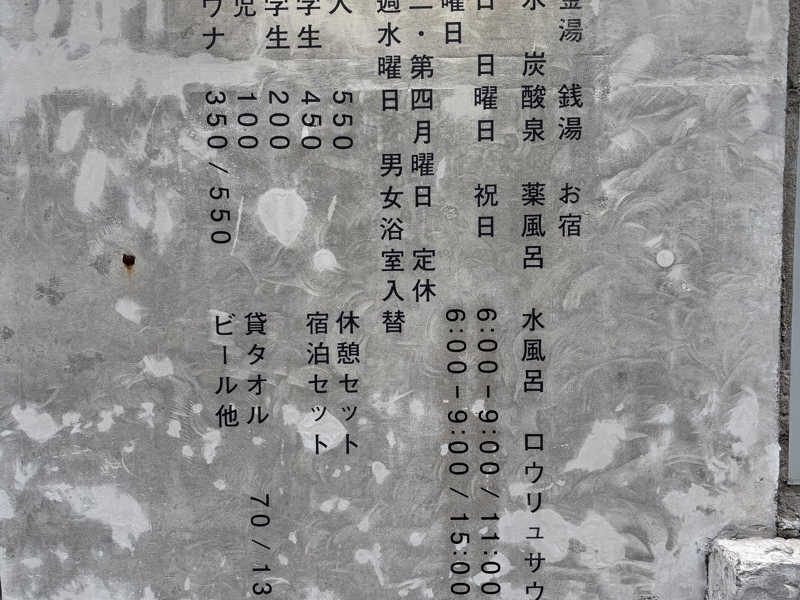 金湯 銭湯 お宿
水 炭酸泉 薬風呂 水風呂 ロウリュサウ
日 日曜日 祝日 6:00-9:00/11:00
曜日 6:00-9:00/15:00
二・第四月曜日 定休
週水曜日 男女浴室入替
人 550 休憩セット
学生 450 宿泊セット
学生 200
児 100 貸タオル 70/13
ウナ 350/550 ビール他